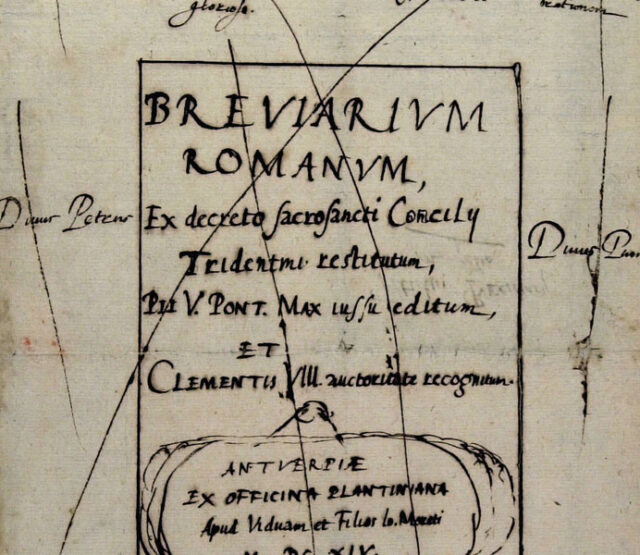 gloriosa.
BREVIARIVM
ROMANVM,
Divus Petrus
Ex decreto sacrosancti Concilij
Divus
Tridentini restitutum,
PII V. PONT. MAX iussu editum,
ET
CLEMENTIS VIII. auctoritate recognitum.
ANTVERPIÆ
EX OFFICINA PLANTINIANA
Apud Viduam et Filios Io. Moreti
M. DC. XIV.